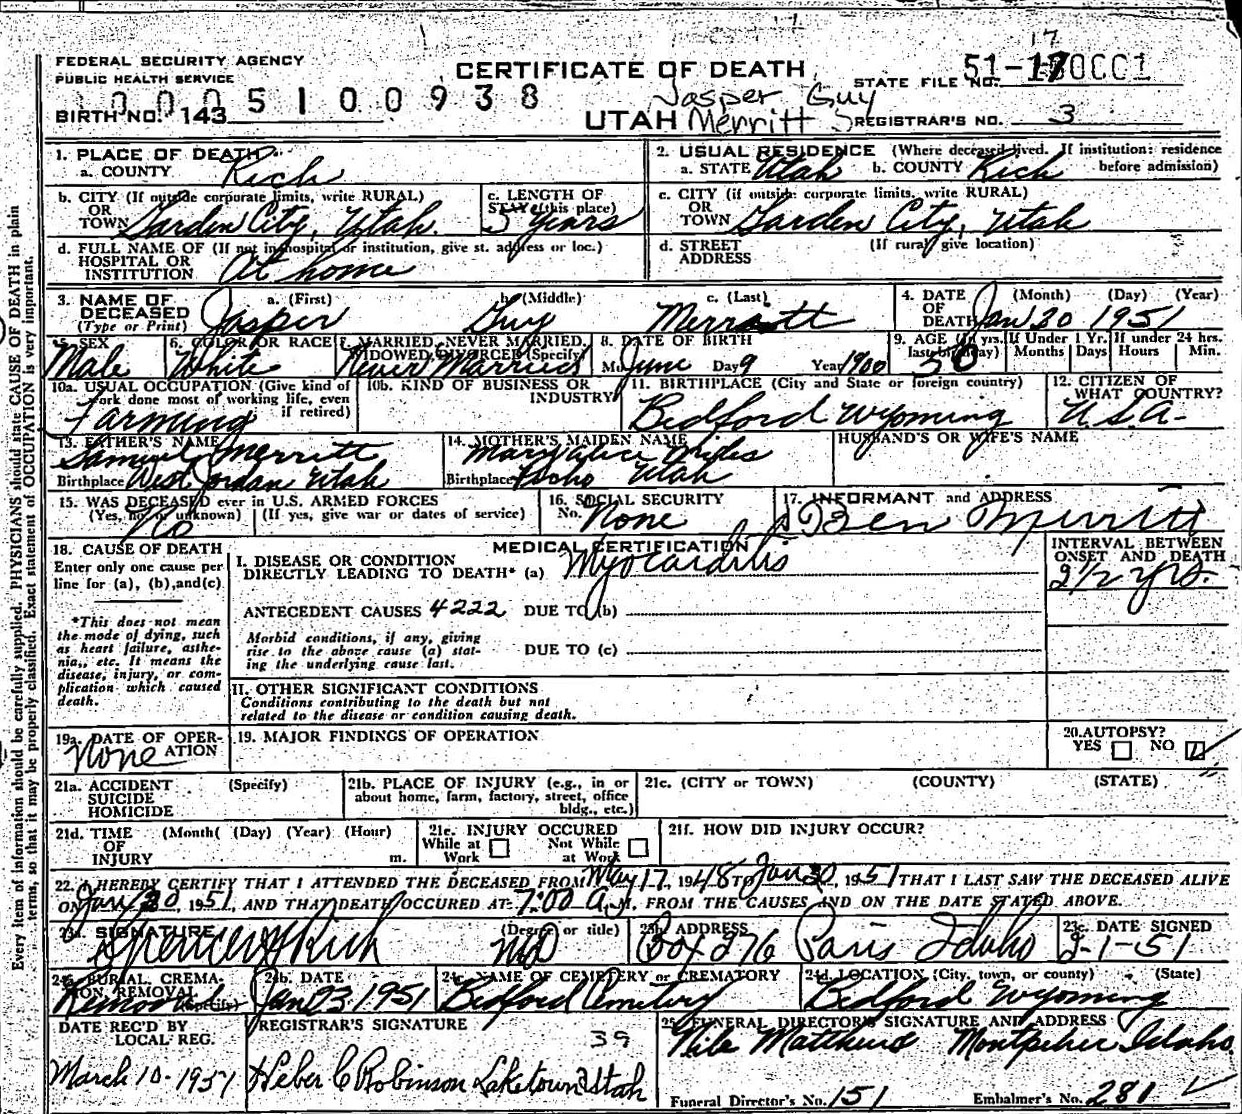 FEDERAL SECURITY AGENCY
PUBLIC HEALTH SERVICE
CERTIFICATE OF DEATH
STATE FILE NO. 51-17
17
0005100938
Jasper Guy
BIRTH NO. 143
UTAH Merritt
REGISTRAR'S NO. 3
1. PLACE OF DEATH
a. COUNTY Rich
2. USUAL RESIDENCE (Where deceased lived. If institution: residence before admission)
a. STATE Utah b. COUNTY Rich
b. CITY (If outside corporate limits, write RURAL)
OR
TOWN Garden City, Utah.
c. LENGTH OF
STAY (this place)
5 years
c. CITY (if outside corporate limits, write RURAL)
OR
TOWN Garden City, Utah
d. FULL NAME OF (If not in hospital or institution, give st. address or loc.)
HOSPITAL OR
INSTITUTION At home
d. STREET (If rural give location)
ADDRESS
3. NAME OF DECEASED
(Type or Print)
a. (First) Jasper
b. (Middle) Guy
c. (Last) Merritt
4. DATE OF DEATH (Month) (Day) (Year)
Jan 20 1951
5. SEX
Male
6. COLOR OR RACE
White
7. MARRIED, NEVER MARRIED,
WIDOWED, DIVORCED (Specify)
Never Married
8. DATE OF BIRTH
Mo June Day 9 Year 1900
9. AGE (In yrs. last birthday)
50
If Under 1 Yr. Months Days
If under 24 hrs. Hours Min.
10a. USUAL OCCUPATION (Give kind of
work done most of working life, even
if retired)
Farming
10b. KIND OF BUSINESS OR
INDUSTRY
11. BIRTHPLACE (City and State or foreign country)
Bedford Wyoming
12. CITIZEN OF
WHAT COUNTRY?
U.S.A.
13. FATHER'S NAME
Samuel Merritt
Birthplace West Jordan Utah
14. MOTHER'S MAIDEN NAME
Mary Alice
Birthplace Utah
HUSBAND'S OR WIFE'S NAME
15. WAS DECEASED ever in U.S. ARMED FORCES
(Yes, no, or unknown) (If yes, give war or dates of service)
No
16. SOCIAL SECURITY
No. None
17. INFORMANT and ADDRESS
Ben Merritt
18. CAUSE OF DEATH
Enter only one cause per
line for (a), (b), and (c).
*This does not mean
the mode of dying, such
as heart failure, asthe-
nia, etc. It means the
disease, injury, or com-
plication which caused
death.
MEDICAL CERTIFICATION
I. DISEASE OR CONDITION
DIRECTLY LEADING TO DEATH* (a) Myocarditis
INTERVAL BETWEEN
ONSET AND DEATH
2 1/2 yrs.
ANTECEDENT CAUSES 4222 DUE TO (b)
Morbid conditions, if any, giving
rise to the above cause (a) stat-
ing the underlying cause last.
DUE TO (c)
II. OTHER SIGNIFICANT CONDITIONS
Conditions contributing to the death but not
related to the disease or condition causing death.
19a. DATE OF OPER-
ATION
None
19. MAJOR FINDINGS OF OPERATION
20. AUTOPSY?
YES NO
21a. ACCIDENT (Specify)
SUICIDE
HOMICIDE
21b. PLACE OF INJURY (e.g., in or
about home, farm, factory, street, office
bldg., etc.)
21c. (CITY or TOWN) (COUNTY) (STATE)
21d. TIME (Month( (Day) (Year) (Hour)
OF
INJURY m.
21e. INJURY OCCURED
While at Work Not While at Work
21f. HOW DID INJURY OCCUR?
22. I HEREBY CERTIFY THAT I ATTENDED THE DECEASED FROM May 17, 1948 TO Jan 20, 1951 THAT I LAST SAW THE DECEASED ALIVE
ON Jan 20 1951, AND THAT DEATH OCCURED AT 7:00 A M. FROM THE CAUSES AND ON THE DATE STATED ABOVE.
23a. SIGNATURE (Degree or title)
Spencer H Rich MD
23b. ADDRESS
Box 276 Paris Idaho
23c. DATE SIGNED
2-1-51
24a. BURIAL, CREMA-
TION, REMOVAL (Specify)
Removal
24b. DATE
Jan 23 1951
24c. NAME OF CEMETERY or CREMATORY
Bedford Cemetery
24d. LOCATION (City, town, or county) (State)
Bedford Wyoming
DATE REC'D BY
LOCAL REG.
March 10-1951
REGISTRAR'S SIGNATURE 39
Heber C Robinson Laketown Utah
25. FUNERAL DIRECTOR'S SIGNATURE AND ADDRESS
Matthews Montpelier Idaho
Funeral Director's No. 151 Embalmer's No. 281
Every item of information should be carefully supplied. PHYSICIANS should state CAUSE OF DEATH in plain
terms, so that it may be properly classified. Exact statement of OCCUPATION is very important.